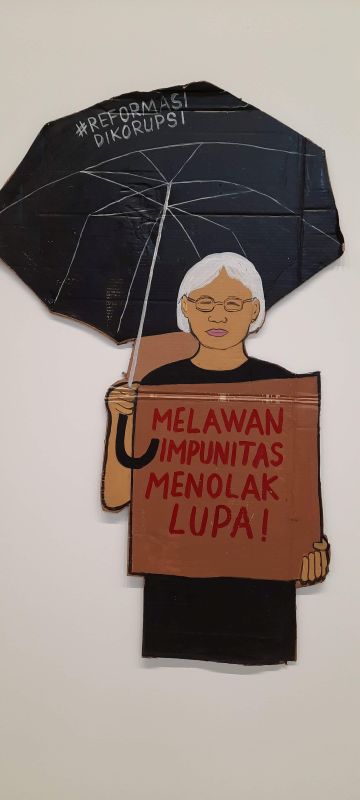 #REFORMASI
DIKORUPSI
MELAWAN
IMPUNITAS
MENOLAK
LUPA!